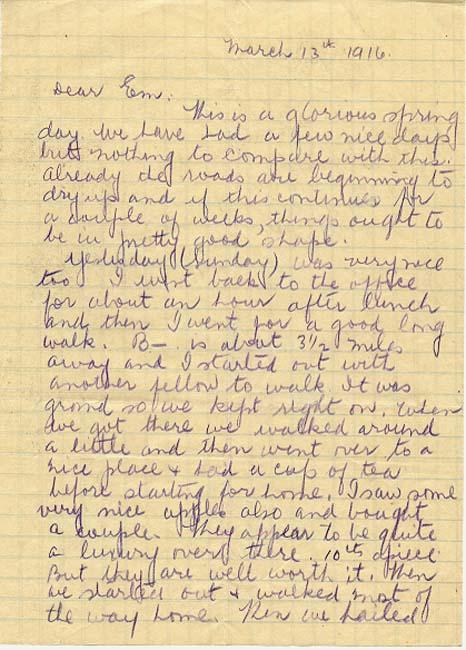 March 13th 1916.
Dear Em:
This is a glorious spring
day. We have had a few nice days
but nothing to compare with this.
Already the roads are beginning to
dry up and if this continues for
a couple of weeks, things ought to
be in pretty good shape.
Yesterday (Sunday) was very nice
too I went back to the office
for about an hour after lunch
and then I went for a good long
walk. B— is about 3 1/2 miles
away and I started out with
another fellow to walk It was
grand so we kept right on. When
we got there we walked around
a little and then went over to a
nice place + had a cup of tea
before starting for home. I saw some
very nice apples also and bought
a couple. They appear to be quite
a luxury over there. 10cts apiece
But they are well worth it. Then
we started out + walked most of
the way home. Then we hailed